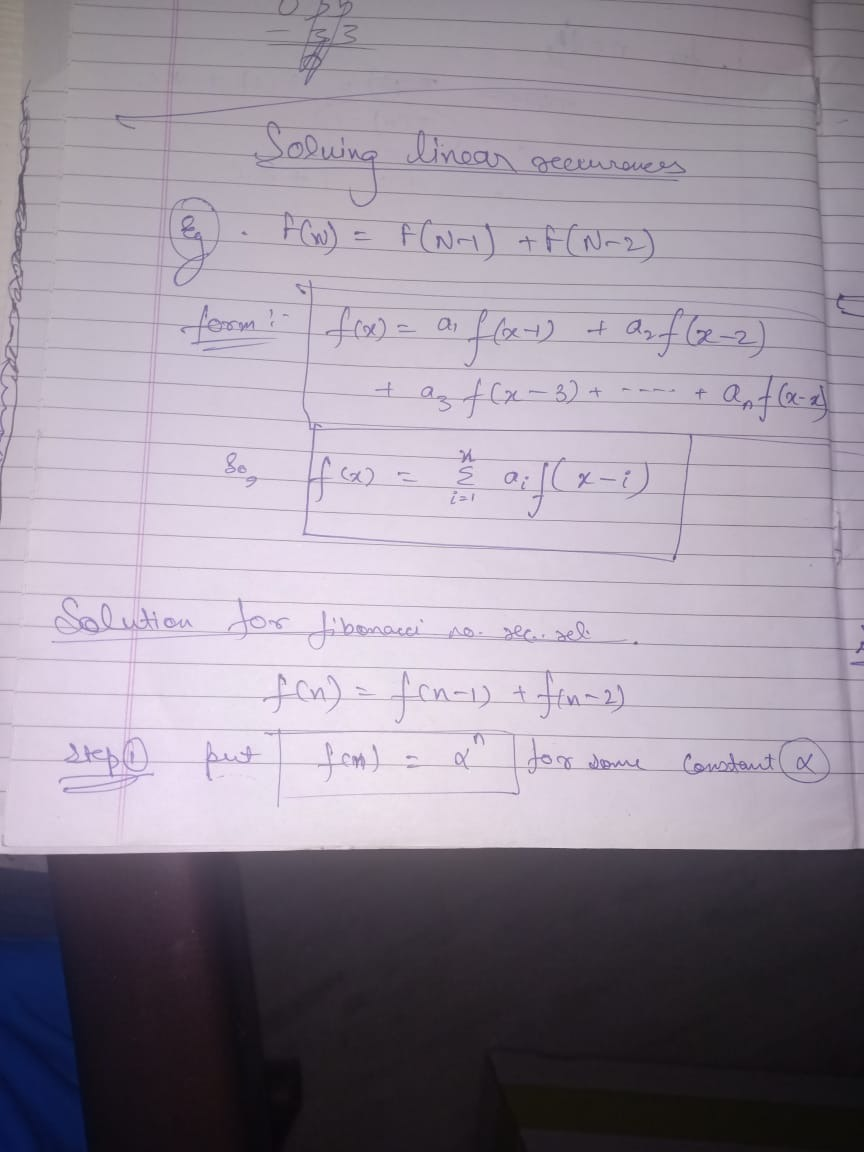 = 3/3
Solving linear recurrences
Eg . f(N) = f(N-1) + f(N-2)
form :- f(x) = a₁ f(x-1) + a₂ f(x-2)
+ a₃ f(x-3) + ----- + aₙ f(x-x)
So, f(x) = x Σ i=1 aᵢ f(x-i)
Solution for fibonacci no. rec. rel.
f(n) = f(n-1) + f(n-2)
step ① put f(n) = αⁿ for some constant α